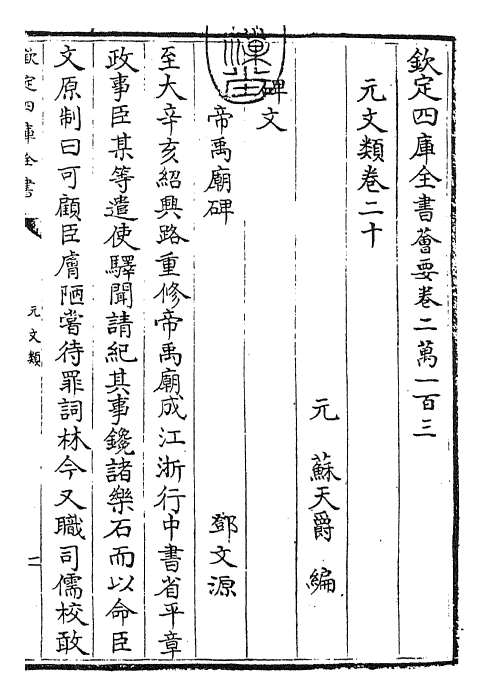 欽定四庫全書薈要卷二萬一百三
元文類卷二十
元 蘇天爵 編
碑文
帝禹廟碑 鄧文源
至大辛亥紹興路重修帝禹廟成江浙行中書省平章
政事臣某等遣使驛聞請紀其事鑱諸樂石而以命臣
文原制曰可顧臣膚陋嘗待罪詞林今又職司儒校敢
欽定四庫全書
元文類